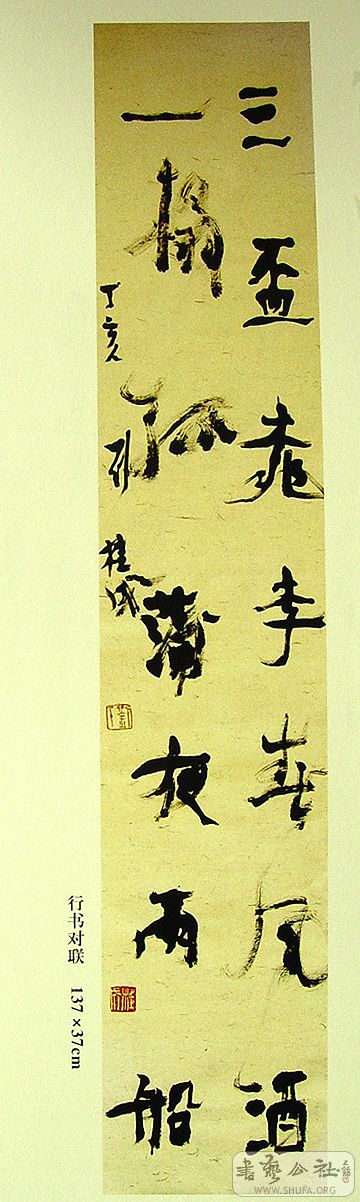 三盃桃李春风酒
一榻菰蒲夜雨船
丁亥 刘桂成
行书对联 137×37cm
書藝公社
WWW.SHUFA.ORG